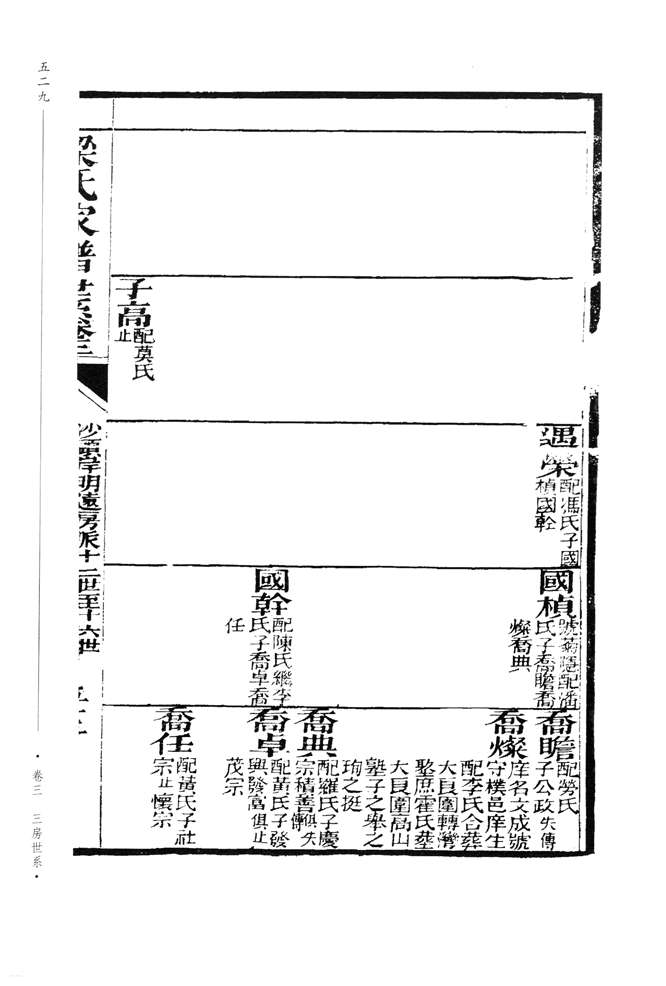 子高
配莫氏
止
遇榮
配馮氏子國
楨國幹
國楨
號菊隱配潘
氏子喬瞻喬
燦喬典
國幹
配陳氏繼李
氏子喬卓喬
任
喬瞻
配勞氏
子公政失傳
喬燦
庠名文成號
守樸邑庠生
配李氏合葬
大貝圍轉灣
庶霍氏葬
大貝圍高山
子之舉之
珣之挺
喬典
配羅氏子慶
宗積善俱失傳
喬卓
配黃氏子發
興發高俱止
茂宗
喬任
配黃氏子社
宗止懷宗
梁氏家譜世系卷三
沙岸明遠房派十二世至十六世
五二九
卷三 三房世系